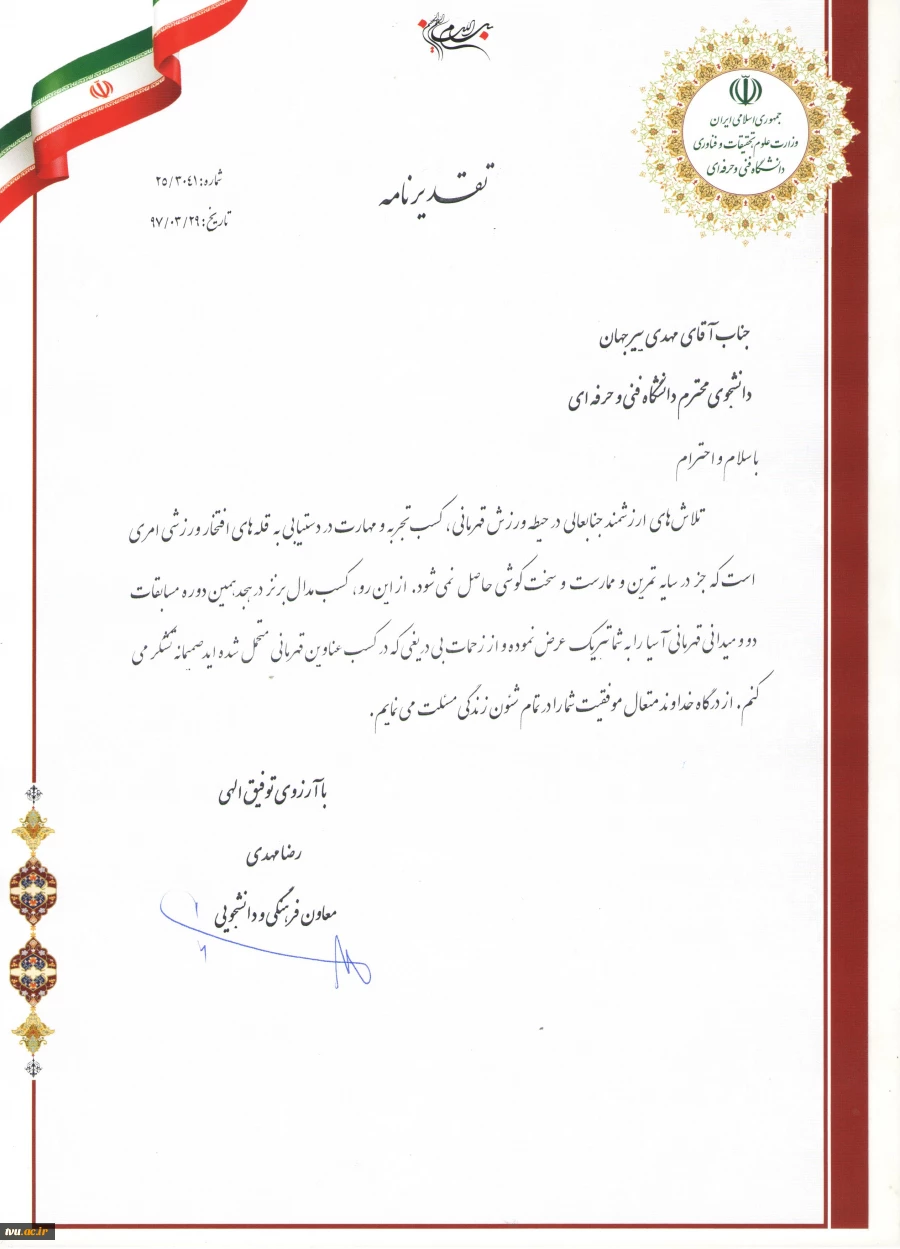 بسم الله الرحمن الرحیم
جمهوری اسلامی ایران
وزارت علوم، تحقیقات و فناوری
دانشگاه فنی و حرفه ای
تقدیرنامه
شماره: ۲۵/۳۰۴۱
تاریخ: ۹۷/۰۳/۲۹
جناب آقای مهدی پیرجهان
دانشجوی محترم دانشگاه فنی و حرفه ای
با سلام و احترام
تلاش‌های ارزشمند جنابعالی در حیطه ورزش قهرمانی، کسب تجربه و مهارت در دستیابی به قله های افتخار ورزشی امری
است که جز در سایه تمرین و ممارست و سخت کوشی حاصل نمی شود. از این رو، کسب مدال برنز در هجدهمین دوره مسابقات
دو و میدانی قهرمانی آسیا را به شما تبریک عرض نموده و از زحمات بی دریغی که در کسب عناوین قهرمانی متحمل شده اید صمیمانه تشکر می
کنم. از درگاه خداوند متعال موفقیت شما را در تمام شئون زندگی مسئلت می نمایم.
با آرزوی توفیق الهی
رضا مهدی
معاون فرهنگی و دانشجویی
tvu.ac.ir